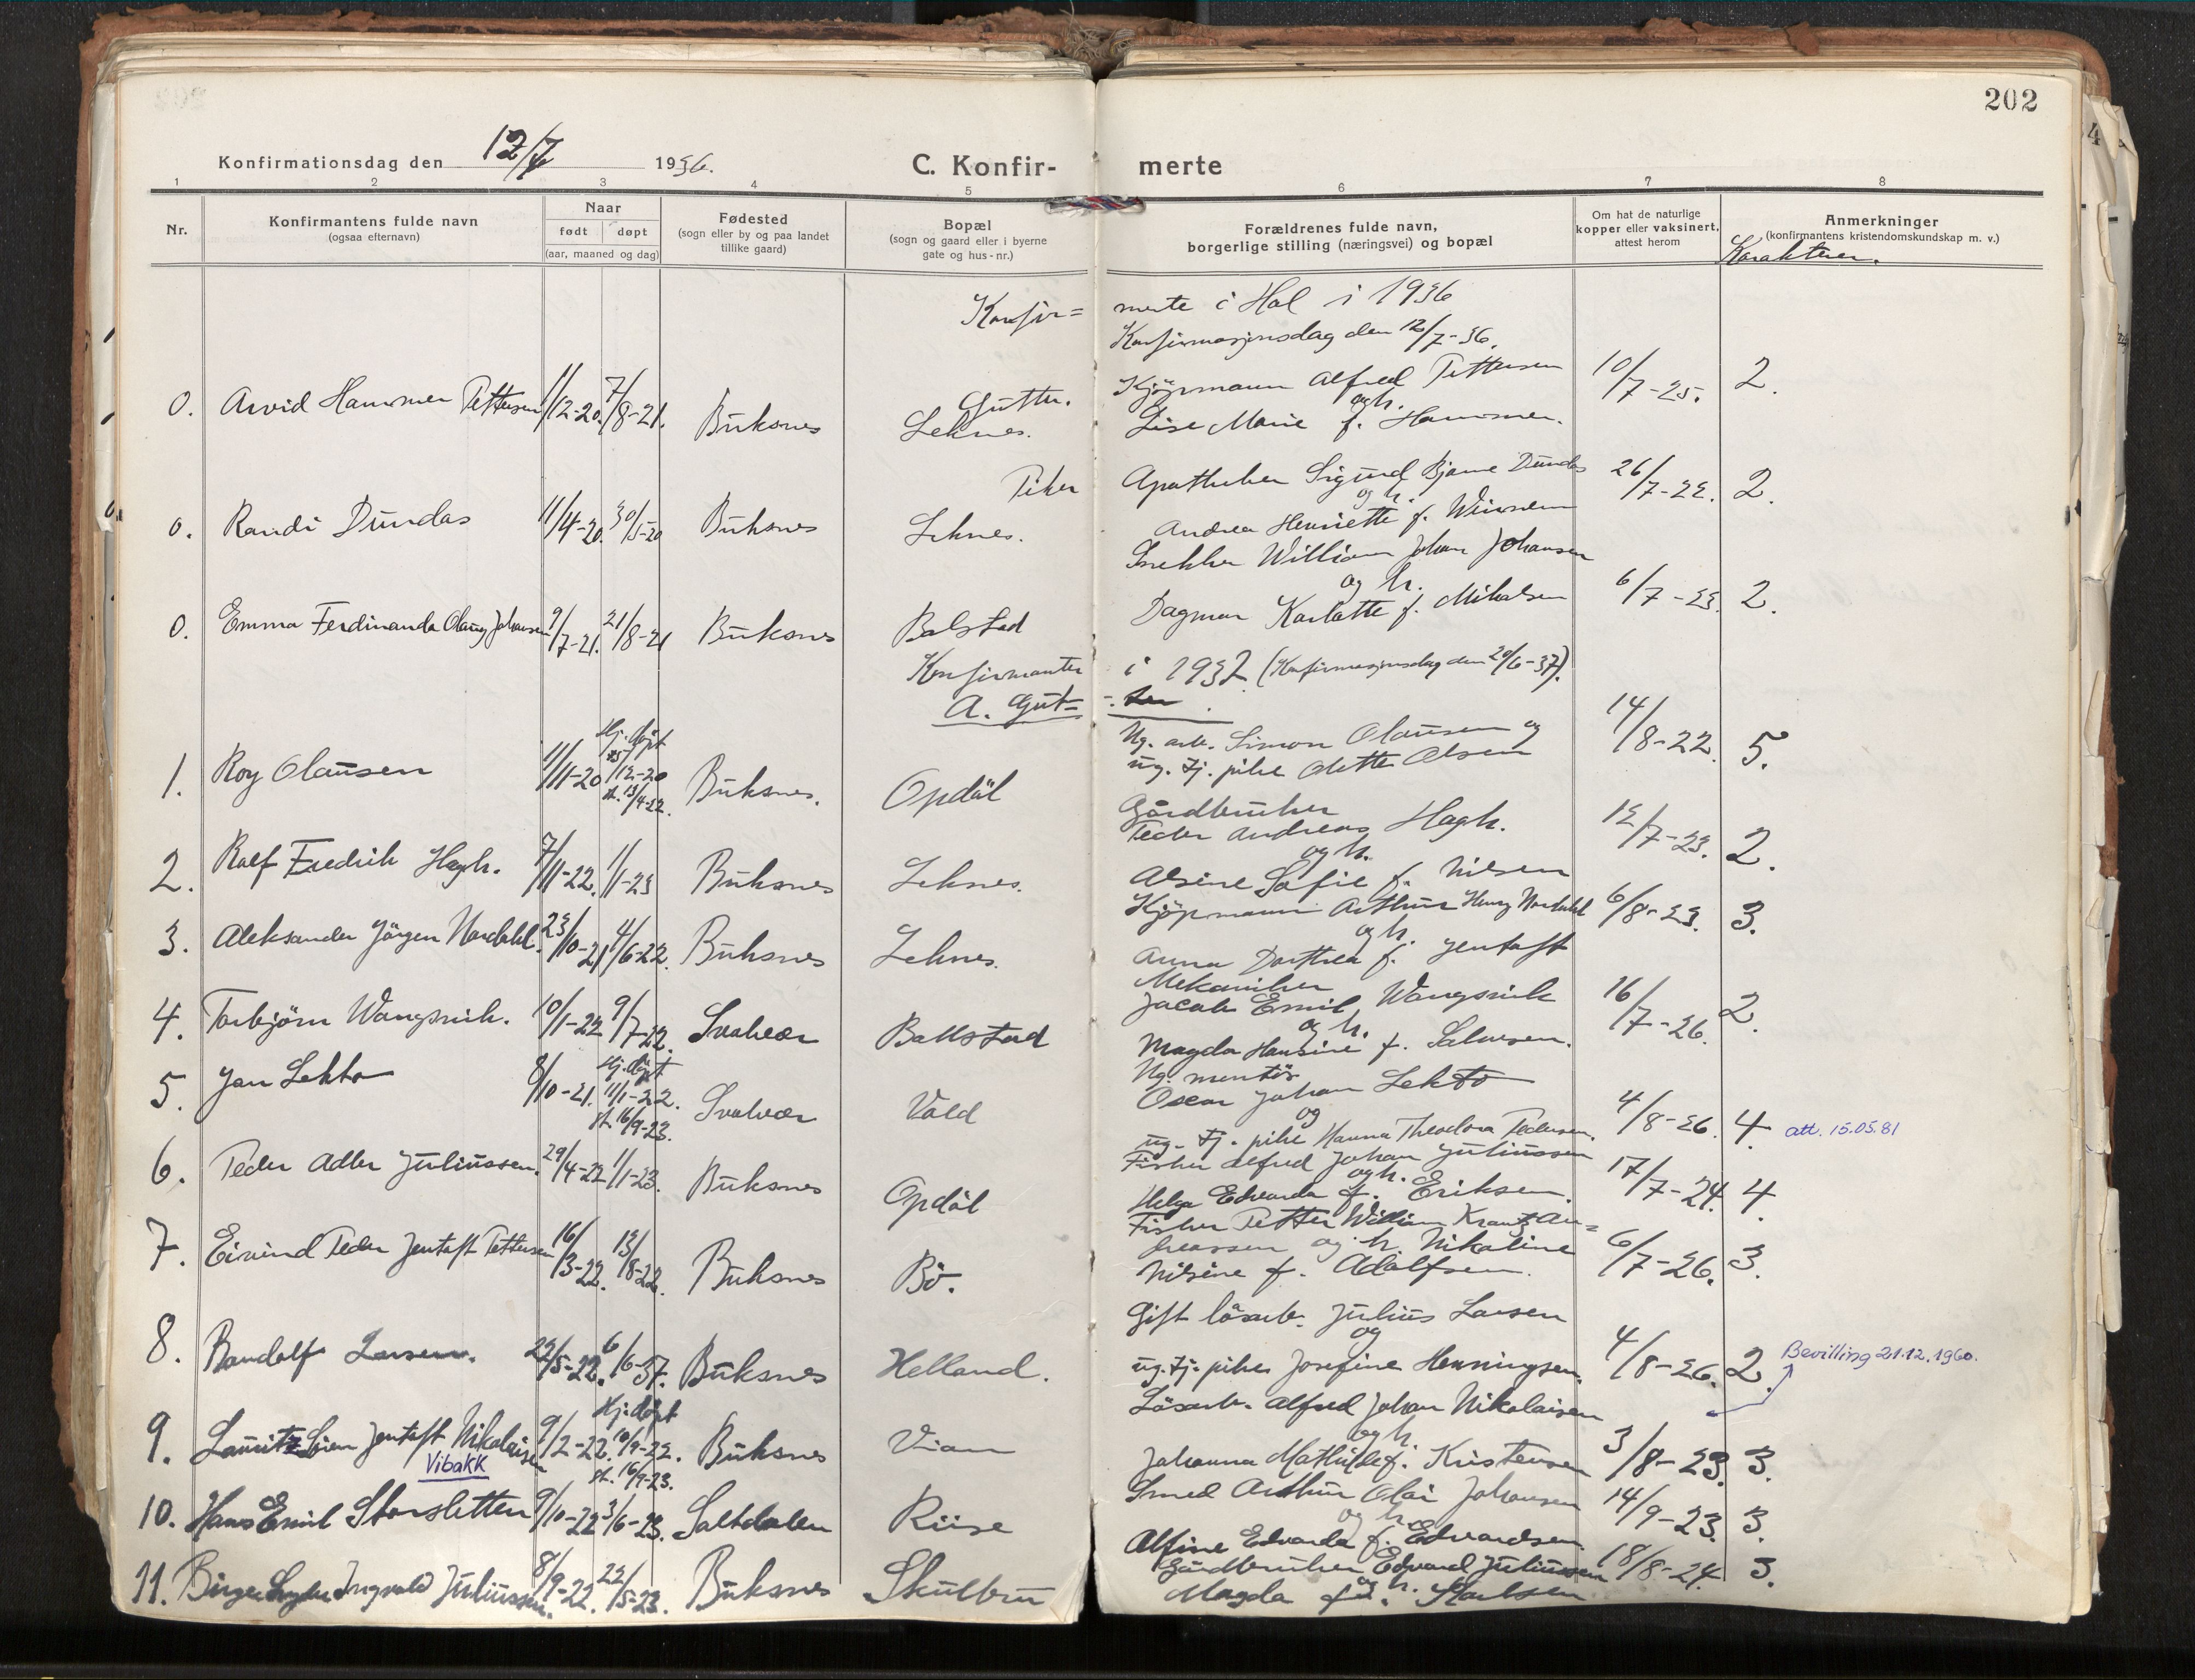 202
Konfirmationsdag den 12/7 1936.
C. Konfir- merte
1 2 3 4 5 6 7 8
Nr.
Konfirmantens fulde navn
(ogsaa efternavn)
Naar
født døpt
(aar, maaned og dag)
Fødested
(sogn eller by og paa landet
tillike gaard)
Bopæl
(sogn og gaard eller i byerne
gate og hus-nr.)
Forældrenes fulde navn,
borgerlige stilling (næringsvei) og bopæl
Om hat de naturlige
kopper eller vaksinert,
attest herom
Anmerkninger
(konfirmantens kristendomskundskap m. v.)
Karakterer.
Konfir= merte i Hol i 1936
Konfirmasjonsdag den 12/7-36.
Gutter.
0. Arvid Hammer Pettersen 11/12-20. 7/8-21. Buksnes Leknes.
Kjöpmann Alfred Pettersen
og h.
Lise Marie f. Hammer.
10/7-25. 2.
Piker
0. Randi Dundas 11/4-20. 30/5-20 Buksnes Leknes.
Apotheker Sigurd Bjarne Dundas
og h.
Andrea Henriette f.
26/7-22. 2.
0. Emma Ferdinanda Olaug Johansen 9/7-21. 21/8-21 Buksnes Balstad
Snekker William Johan Johansen
og h.
Dagmar Karlotte f. Mikalsen
6/7-23. 2.
Konfirmanter i 1937 (Konfirmasjonsdag den 20/6-37).
A. Gut= -ter
1. Roy Olaüsen 11/11-20 Hj. döpt /12-20 st. 13/4-22. Buksnes. Opdål
Ug. arb. Simon Olaüsen og
üg. tj. pike Olsen
14/8-22. 5.
2. Ralf Fredrik Hagh. 7/11-22. 1/1-23 Buksnes Leknes.
Gårdbruker
Peder Andreas Hagh.
og h.
Alsine Sofie f. Nilsen
12/7-23. 2.
3. Aleksander Jörgen Nordahl. 23/10-21 4/6-22. Buksnes Leknes.
Kjöpmann Arthur Henry Nordahl
og h.
Anna Dorthea f. Jentoft
6/8-23. 3.
4. Torbjörn Wangsvik. 10/1-22 9/7-22. Svolvær Ballstad
Mekaniker
Jacob Emil Wangsvik
og h.
Magda Hansine f. Salvesen.
16/7-26. 2.
5. Jan Lekto 8/10-21. Hj. döpt 11/1-22. st. 16/9-23. Svolvær Vold
Ug. montör
Oscar Johan Lekto
og
üg. tj. pike Hanna Theodora Pedersen.
4/8-26. 4. att. 15.05.81
6. Peder Adler Jüliüssen. 29/4-22 1/1-23. Buksnes Opdål
Fisker Alfred Johan Jüliüssen
og h.
Helga Edvarda f. Eriksen.
17/7-24. 4.
7. Eivind Peder Jentoft Pettersen 16/3-22. 13/8-22. Buksnes Bö.
Fisker Petter William Krantz An=
dreassen og h. Nikoline
Nilsine f. Adolfsen.
6/7-26. 3.
8. Randolf Larsen. 22/5-22. 6/6-37. Buksnes Helland.
Gift lösarb. Jülius Larsen
og
üg. tj. pike Josefine Henningsen.
4/8-26. 2. Bevilling 21.12.1960.
9. Lauritz Sören Jentoft Nikolaisen 9/2-22. Hj. döpt 10/9-22. st. 16/9-23. Buksnes
Vibakk
Lösarb. Alfred Johan Nikolaisen
og h.
Johanna Mathilde f. Kristensen
3/8-23. 3.
10. Hans Emil Storsletten 9/10-22 3/6-23. Saltdalen Riise
Smed Arthur Olai Johansen
og h.
Alfine Edvarda f. Edvardsen.
14/9-23. 3.
11. Birger Ingvald Jüliüssen. 8/9-22. 22/5-23. Buksnes Skulbru
Gårdbruker Edvard Jüliüssen
og h.
Magda f. Karlsen
18/8-24. 3.